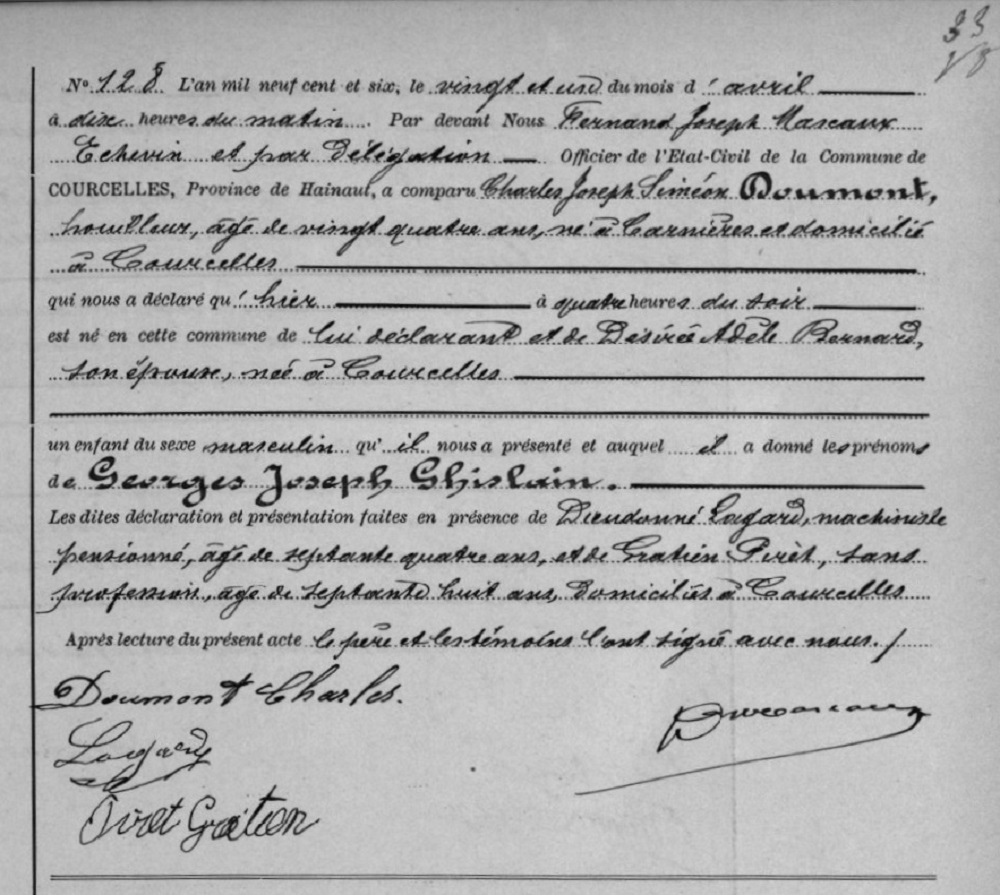 33
N° 128 L'an mil neuf cent et six, le vingt et un du mois d' avril
à dix heures du matin. Par devant Nous Fernand Joseph Mascaux
Echevin et par délégation Officier de l'Etat-Civil de la Commune de
COURCELLES, Province de Hainaut, a comparu Charles Joseph Siméon Doumont,
houilleur, âgé de vingt quatre ans, né à Carnières et domicilié
à Courcelles
qui nous a déclaré qu' hier à quatre heures du soir
est né en cette commune de lui déclarant et de Désirée Adèle Bernard,
son épouse, née à Courcelles
un enfant du sexe masculin qu' il nous a présenté et auquel il a donné les prénoms
de Georges Joseph Ghislain.
Les dites déclaration et présentation faites en présence de Dieudonné Lagard, machiniste
pensionné, âgé de septante quatre ans, et de Gratien Piret, sans
profession, âgé de septante huit ans, domiciliés à Courcelles
Après lecture du présent acte le père et les témoins l'ont signé avec nous.
Doumont Charles.
Lagard
Piret Gratien